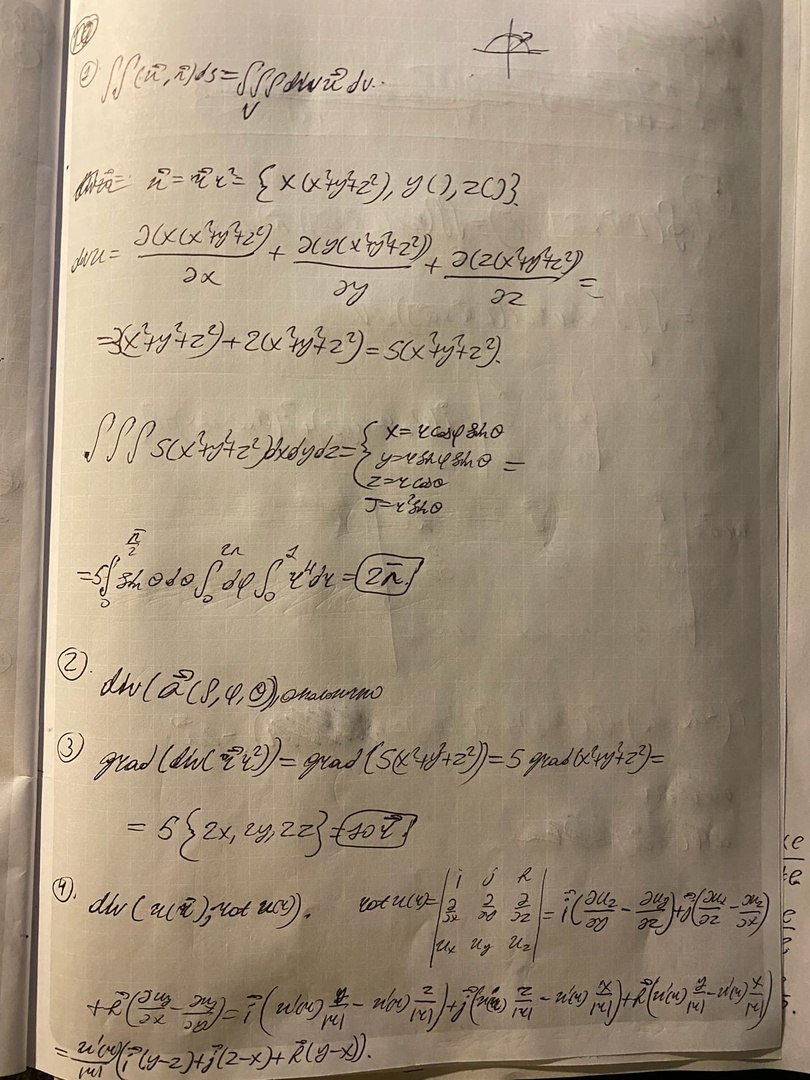 ⑪
① ∫∫(u⃗, n⃗)ds = ∫∫∫ div u⃗ dv.
V
u⃗ = r⃗ r² = {x(x²+y²+z²), y( ), z( )}
div u = ∂(x(x²+y²+z²))/∂x + ∂(y(x²+y²+z²))/∂y + ∂(z(x²+y²+z²))/∂z =
= 3(x²+y²+z²) + 2(x²+y²+z²) = 5(x²+y²+z²).
∫∫∫ 5(x²+y²+z²)dxdydz = { x = r cosφ sinθ
y = r sinφ sinθ =
z = r cosθ
J = r² sinθ
= 5 ∫₀^{π/2} sinθ dθ ∫₀^{2π} dφ ∫₀^1 r⁴ dr = 2π
② div(a⃗(ρ, φ, θ))
③ grad(div(r⃗ r²)) = grad(5(x²+y²+z²)) = 5 grad(x²+y²+z²) =
= 5{2x, 2y, 2z} = 10 r⃗
④ div(u(r⃗); rot u(r)). rot u(r) = | i j k ; ∂/∂x ∂/∂y ∂/∂z ; u_x u_y u_z | = i⃗(∂u_z/∂y − ∂u_y/∂z) + j⃗(∂u_x/∂z − ∂u_z/∂x)
+ k⃗(∂u_y/∂x − ∂u_x/∂y) = i⃗(u'(r) y/|r| − u'(r) z/|r|) + j⃗(u'(r) z/|r| − u'(r) x/|r|) + k⃗(u'(r) y/|r| − u'(r) x/|r|)
= u'(r)/|r| (i⃗(y−z) + j⃗(z−x) + k⃗(y−x)).